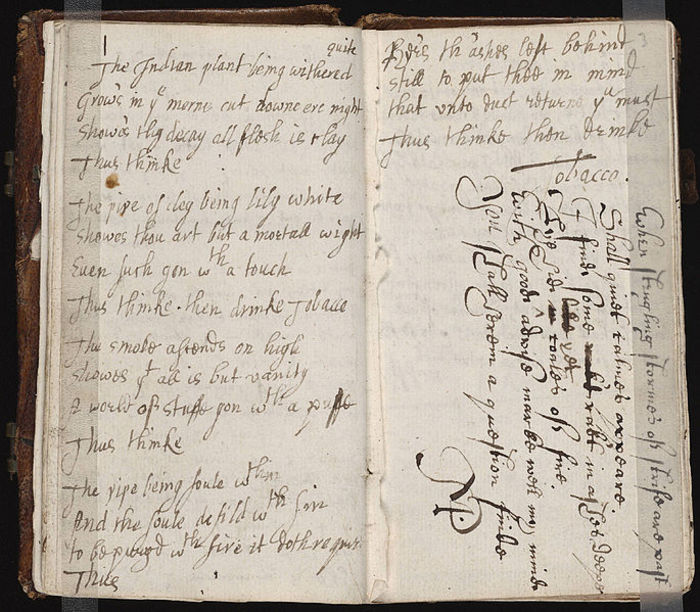 quite
The Indian plant being withered
Grows in ye morne cut downe ere night
Showes thy decay all flesh is clay
Thus thinke
The pipe of cley being lily white
Showes thou art but a mortall wight
Even such gon wth a touch
Thus thinke. then drinke Tobacco
The smoke assends on high
Showes yt all is but vanity
A world of stuffe gon wth a puffe
Thus thinke
The pipe being foule wthin
And the soule defild wth sin
to be purged wth fire it doth requir
Thus
th ashes left behind
still to put thee in mind
that unto dust returne yu must
Thus thinke then drinke
Tobacco.
When stormes of strife are past
Shall quiet calmes appeare
I find some in ashes deepe
coales of fire
With good advise marke well my minde
You shall a question finde